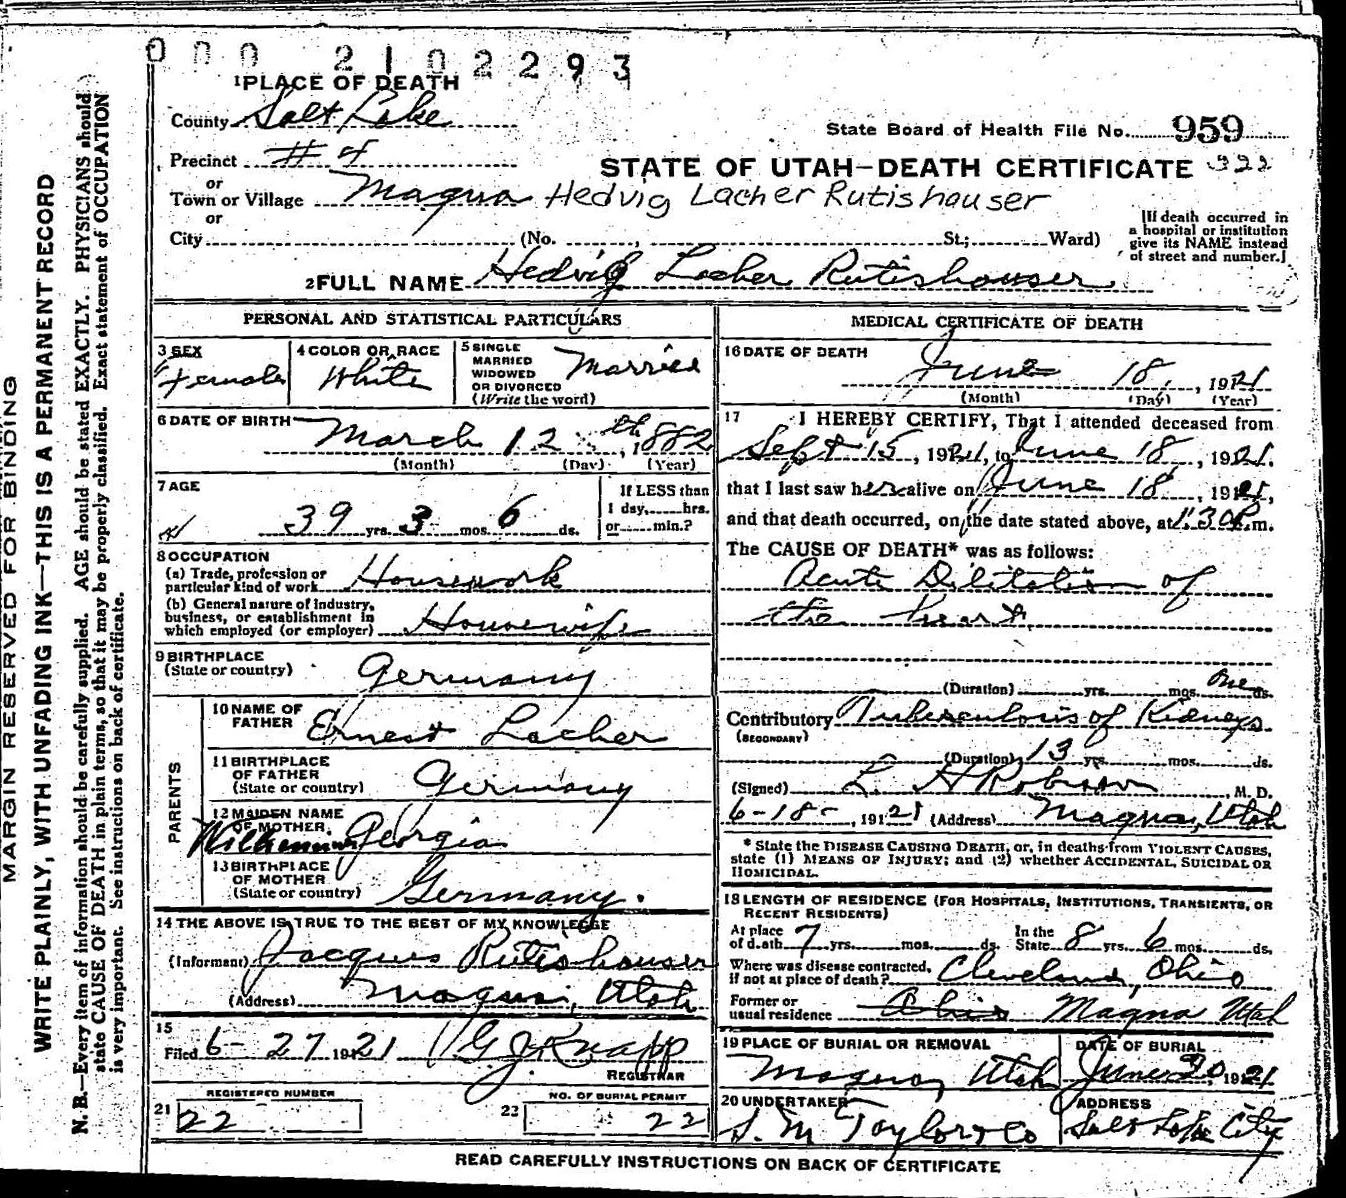 000 2102293
1 PLACE OF DEATH
County Salt Lake
State Board of Health File No. 959
Precinct #4
STATE OF UTAH—DEATH CERTIFICATE 322
or
Town or Village Magna Hedvig Lacher Rutishauser
or
City (No. , St.; Ward)
[If death occurred in a hospital or institution give its NAME instead of street and number.]
2 FULL NAME Hedvig Lacher Rutishauser
PERSONAL AND STATISTICAL PARTICULARS
3 SEX Female
4 COLOR OR RACE White
5 SINGLE MARRIED WIDOWED OR DIVORCED (Write the word) Married
6 DATE OF BIRTH March 12th, 1882
(Month) (Day) (Year)
7 AGE
39 yrs. 3 mos. 6 ds.
If LESS than 1 day, hrs. or min.?
8 OCCUPATION
(a) Trade, profession or particular kind of work Housework
(b) General nature of industry, business, or establishment in which employed (or employer) Housewife
9 BIRTHPLACE (State or country) Germany
PARENTS
10 NAME OF FATHER Ernest Lacher
11 BIRTHPLACE OF FATHER (State or country) Germany
12 MAIDEN NAME OF MOTHER, Georgia
13 BIRTHPLACE OF MOTHER (State or country) Germany.
14 THE ABOVE IS TRUE TO THE BEST OF MY KNOWLEDGE
(Informant) Jacques Rutishauser
(Address) Magna, Utah
15
Filed 6-27 1921 G J Knapp
REGISTRAR
REGISTERED NUMBER
21 22
NO. OF BURIAL PERMIT
22 22
MEDICAL CERTIFICATE OF DEATH
16 DATE OF DEATH
June 18, 1921
(Month) (Day) (Year)
17 I HEREBY CERTIFY, That I attended deceased from
Sept 15, 1921, to June 18, 1921.
that I last saw her alive on June 18, 1921,
and that death occurred, on the date stated above, at 1:30 P.m.
The CAUSE OF DEATH* was as follows:
Acute Dilitation of
the heart
(Duration) yrs. mos. One ds.
Contributory Tuberculosis of Kidneys
(SECONDARY)
(Duration) 13 yrs. mos. ds.
(Signed) L. H Robinson, M. D.
6-18-, 1921 (Address) Magna, Utah
* State the DISEASE CAUSING DEATH, or, in deaths from VIOLENT CAUSES,
state (1) MEANS OF INJURY; and (2) whether ACCIDENTAL, SUICIDAL OR
HOMICIDAL.
18 LENGTH OF RESIDENCE (FOR HOSPITALS, INSTITUTIONS, TRANSIENTS, OR
RECENT RESIDENTS)
At place of death 7 yrs. mos. ds. In the State 8 yrs. 6 mos. ds.
Where was disease contracted, if not at place of death? Cleveland, Ohio
Former or usual residence Ohio Magna Utah
19 PLACE OF BURIAL OR REMOVAL
Magna, Utah
DATE OF BURIAL
June 20, 1921
20 UNDERTAKER
S. M Taylor & Co
ADDRESS
Salt Lake City
READ CAREFULLY INSTRUCTIONS ON BACK OF CERTIFICATE
MARGIN RESERVED FOR BINDING
WRITE PLAINLY, WITH UNFADING INK—THIS IS A PERMANENT RECORD
N. B.—Every item of information should be carefully supplied. AGE should be stated EXACTLY. PHYSICIANS should
state CAUSE OF DEATH in plain terms, so that it may be properly classified. Exact statement of OCCUPATION
is very important. See instructions on back of certificate.